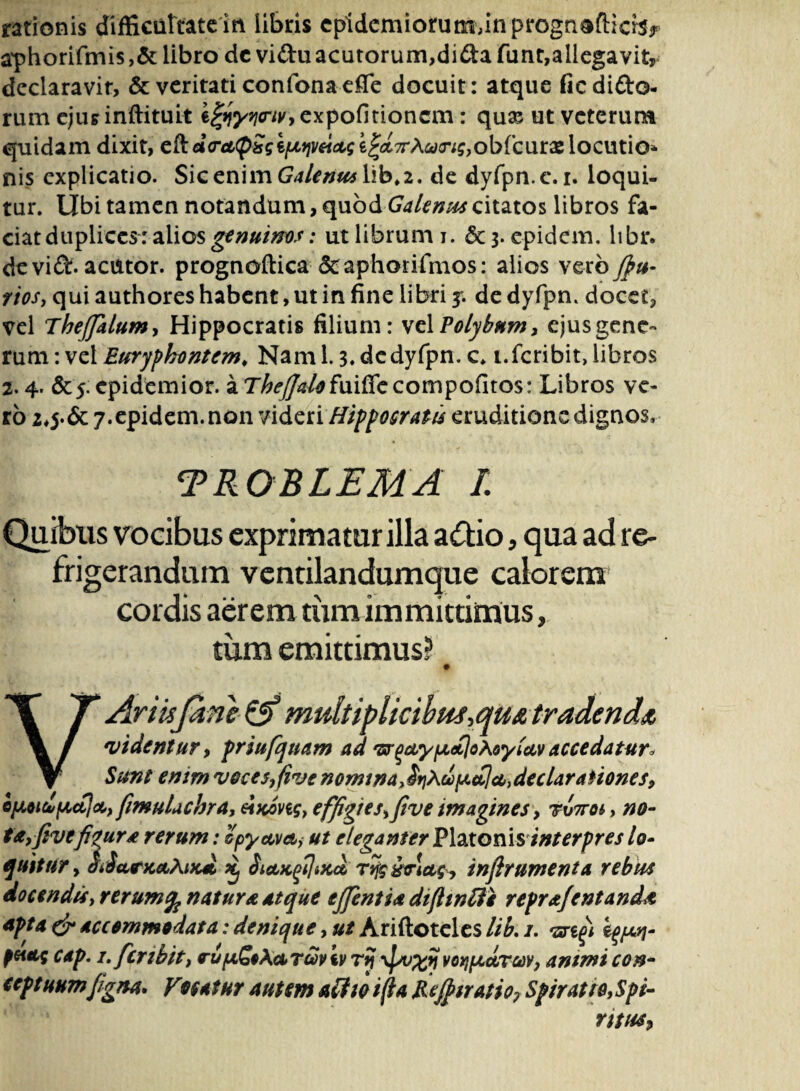 rationis difficultate in libris epidemiorum,in prognosticis,
aphorismis,& libro de victu acutorum,dicta sunt,allegavit,
declaravit, & veritati consona esse docuit: atque sic dicto-
rum ejus instituit ἐξήγησιν, expositionem: quæ ut veterum
quidam dixit, est ἀσαφȣ̃ς ἑρμηνείας ἐξάπλωσις,obscuræ locutio-
nis explicatio. Sic enim Galenus lib.2. de dyspn.c.1. loqui-
tur. Ubi tamen notandum, quòd Galenus citatos libros fa-
ciat duplices: alios genuinos: ut librum 1. & 3. epidem. libr.
de vict. acutor. prognostica & aphorismos: alios verò spu-
rios, qui authores habent, ut in fine libri 3. de dyspn. docet,
vel Thessalum, Hippocratis filium: vel Polybum, ejus gene-
rum: vel Euryphontem. Nam l. 3. de dyspn. c. 1. scribit, libros
2. 4. & 5. epidemior. à Thessalo fuisse compositos: Libros ve-
rò 2.5.& 7.epidem.non videri Hippocratis eruditione dignos.
PROBLEMA I.
Quibus vocibus exprimatur illa actio, qua ad re-
frigerandum ventilandumque calorem
cordis aërem tùm immittimus,
tùm emittimus?
VAriis sanè & multiplicibus,quæ tradenda
videntur, priusquam ad πραγμαϊολογίαν accedatur.
Sunt enim voces, sive nomina, δηλώμαϊα, declarationes,
ὁμοιώμαϊα, simulachra, εἰκόνες, effigies, sive imagines, τύποι, no-
tæ, sive figuræ rerum: ὄργανα, ut eleganter Platonis interpres lo-
quitur, διδασκαλικὰ ϗ διακριϊικὰ τῆς ȣ̓σίας, instrumenta rebus
docendis, rerumq́ natura atque essentia distinctè repræsentanda
apta & accommodata: denique, ut Aristoteles lib. 1. περὶ ἑρμη-
νείας cap. 1. scribit, σύμβολα τῶν ἐν τῇ ψυχῇ νοημάτων, animi con-
ceptuum signa. Vocatur autem actio ista Respiratio, Spiratio,Spi-
ritus,